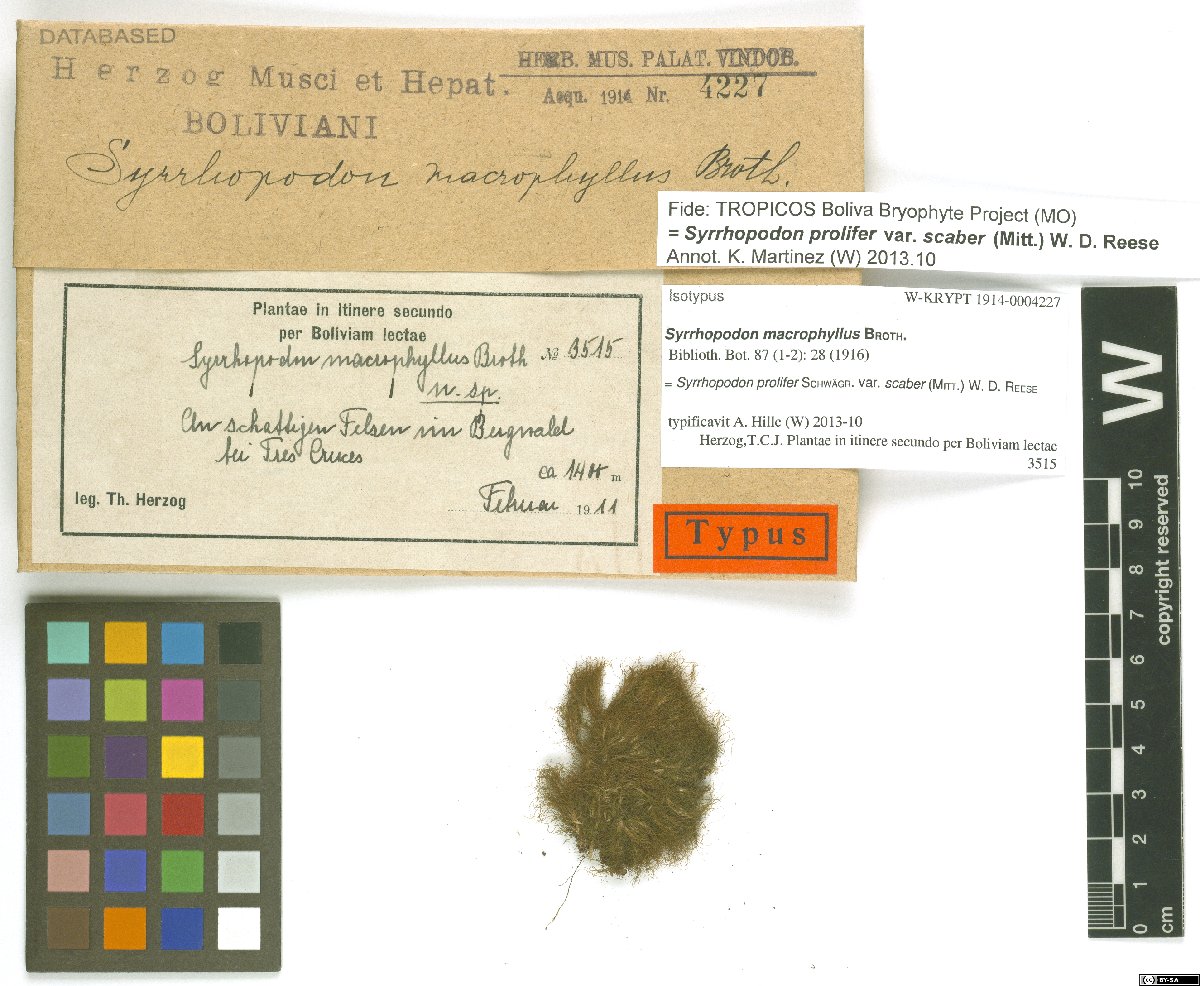 DATABASED
Herzog Musci et Hepat.
BOLIVIANI
HERB. MUS. PALAT. VINDOB.
Acqu. 1914 Nr. 4227
Syrrhopodon macrophyllus Broth.
Fide: TROPICOS Boliva Bryophyte Project (MO)
= Syrrhopodon prolifer var. scaber (Mitt.) W. D. Reese
Annot. K. Martinez (W) 2013.10
Plantae in itinere secundo
per Boliviam lectae
Syrrhopodon macrophyllus Broth № 3515
n. sp.
An schattigen Felsen im Bergwald
bei Tres Cruces
ca 1400 m
leg. Th. Herzog
Februar 1911
Isotypus W-KRYPT 1914-0004227
Syrrhopodon macrophyllus BROTH.
Biblioth. Bot. 87 (1-2): 28 (1916)
= Syrrhopodon prolifer SCHWÄGR. var. scaber (MITT.) W. D. REESE
typificavit A. Hille (W) 2013-10
Herzog,T.C.J. Plantae in itinere secundo per Boliviam lectac
3515
Typus
W
copyright reserved
10
9
8
7
6
5
4
3
2
1
0
cm
cc BY-SA